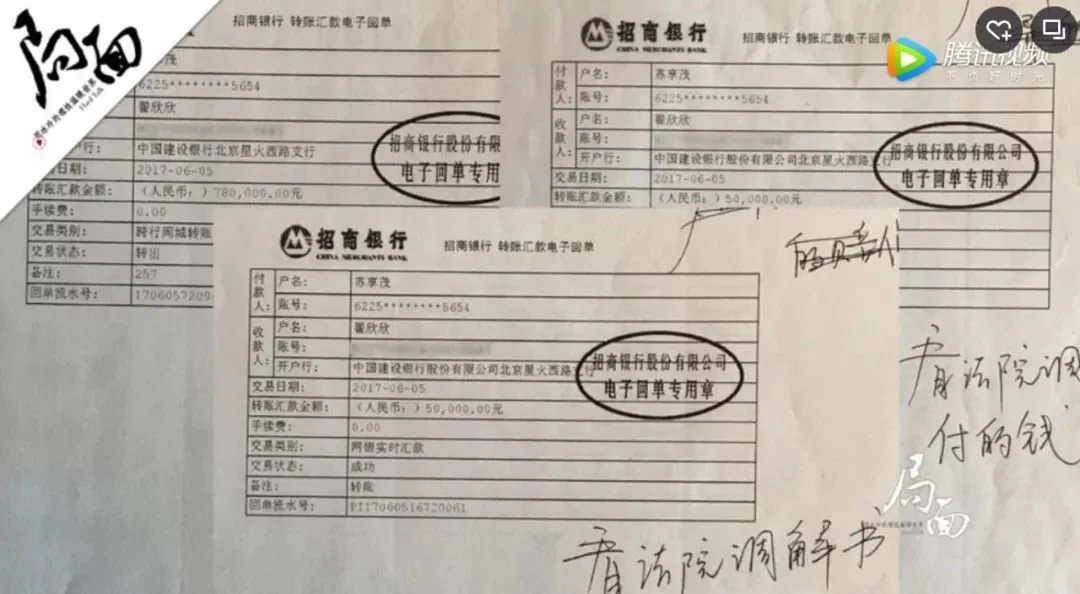 局面
Hard Talk
招商银行 转账汇款电子回单
茂
6225********5654
翟欣欣
行: 中国建设银行北京星火西路支行
日期: 2017-06-05
转账汇款金额: (人民币:)780,000.00元
手续费: 0.00
交易类别: 跨行同城转账
交易状态: 转出
备注: 257
回单流水号:
招商银行股份有限
电子回单专用
招商银行
CHINA MERCHANTS BANK
招商银行 转账汇款电子回单
付款人: 户名: 苏享茂
账号: 6225********5654
收款人: 户名: 翟欣欣
账号:
开户行: 中国建设银行股份有限公司北京星火西路支行
交易日期: 2017-06-05
转账汇款金额: (人民币:)50,000.00元
招商银行股份有限公司
电子回单专用章
腾讯视频
不负好时光
招商银行
CHINA MERCHANTS BANK
招商银行 转账汇款电子回单
付款人: 户名: 苏享茂
账号: 6225********5654
收款人: 户名: 翟欣欣
账号:
开户行: 中国建设银行股份有限公司北京星火西路支行
交易日期: 2017-06-05
转账汇款金额: (人民币:)50,000.00元
手续费: 0.00
交易类别: 网银实时汇款
交易状态: 成功
备注: 转账
回单流水号: PI17060516720061
招商银行股份有限公司
电子回单专用章
看法院调
付的钱
局面
看法院调解书